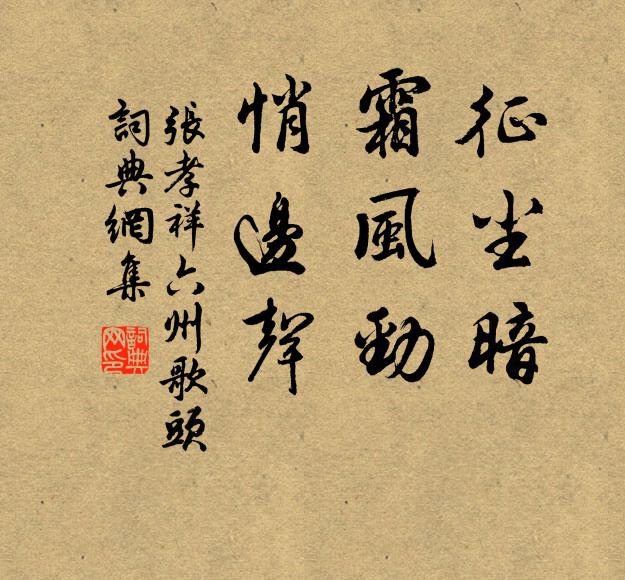 征尘暗
霜風勁
悄邊聲
張孝祥六州歌頭
詞典網集
詞典网印